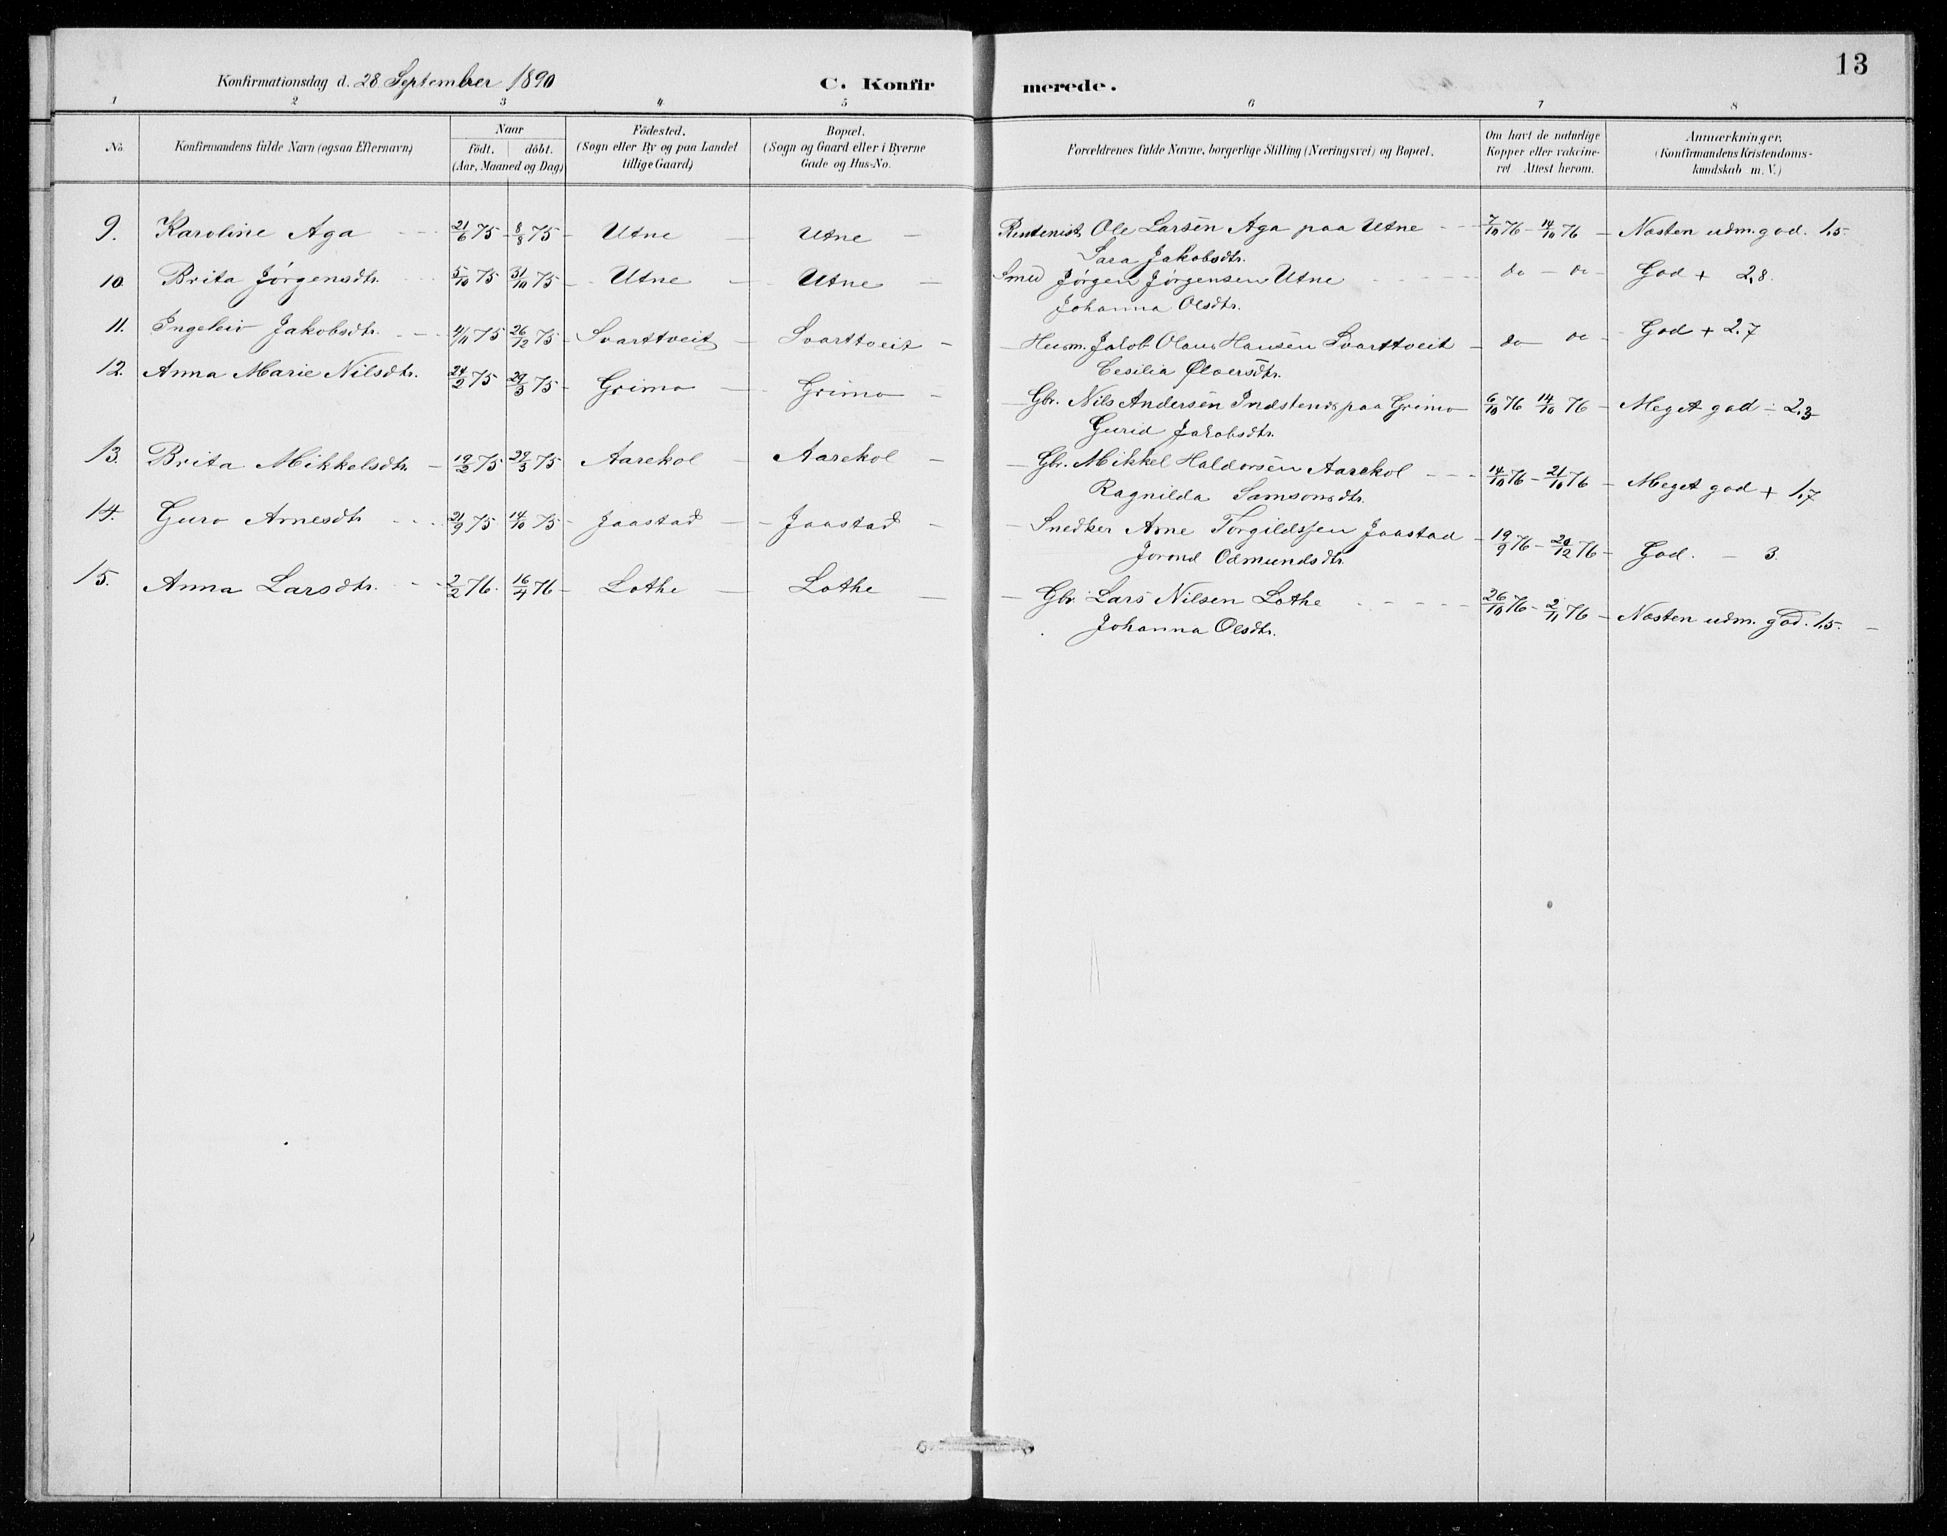 13
Konfirmationsdag d. 28 September 1890
C. Konfirmerede.
1 2 3 4 5 6 7 8
No. | Konfirmandens fulde Navn (ogsaa Efternavn) | Naar födt. döbt. (Aar, Maaned og Dag) | Födested. (Sogn eller By og paa Landet tillige Gaard) | Bopæl. (Sogn og Gaard eller i Byerne Gade og Hus-No. | Forældrenes fulde Navne, borgerlige Stilling (Næringsvei) og Bopæl. | Om havt de naturlige Kopper eller vakcineret Attest herom. | Anmærkninger. (Konfirmandens Kristendomskundskab m. V.)
9. Karoline Aga 21/6 75 - 8/8 75 - Utne - Utne - Rentenist Ole Larsen Aga paa Utne - 7/10 76 - 14/10 76 - Næsten udm. god. 1,5.
Sara Jakobsdtr.
10. Brita Jørgensdtr. 5/10 75 31/10 75 - Utne - Utne - Smed Jørgen Jørgensen Utne - do - do - God + 2,8.
Johanna Olsdtr.
11. Ingeleiv Jakobsdtr. - 4/11 75 26/12 75 - Svarttveit - Svarttveit - Husm. Jakob Olaus Hansen Svarttveit - do - do - God + 2,7
Cesilia Ølversdtr.
12. Anna Marie Nilsdtr. 24/2 75 29/3 75 - Grimo - Grimo - Gbr. Nils Andersen Indstenes paa Grimo 6/10 76 14/10 76 - Meget god ÷ 2,3
Gurid Jakobsdtr.
13. Brita Mikkelsdtr. - 19/2 75 29/3 75 - Aarekol - Aarekol - Gbr. Mikkel Haldorsen Aarekol - 14/10 76 - 21/10 76 - Meget god + 1,7
Ragnilda Samsonsdtr.
14. Guro Arnesdtr. 21/9 75 14/10 75 - Jaastad - Jaastad - Snedker Arne Torgildssen Jaastad - 19/9 76 - 20/12 76 - God. - 3
Jorond Odmundsdtr.
15. Anna Larsdtr. - 2/2 76. 16/4 76 - Lothe - Lothe - Gbr. Lars Nilsen Lothe - 26/10 76 - 2/11 76 - Næsten udm. god. 1,5. -
Johanna Olsdtr.